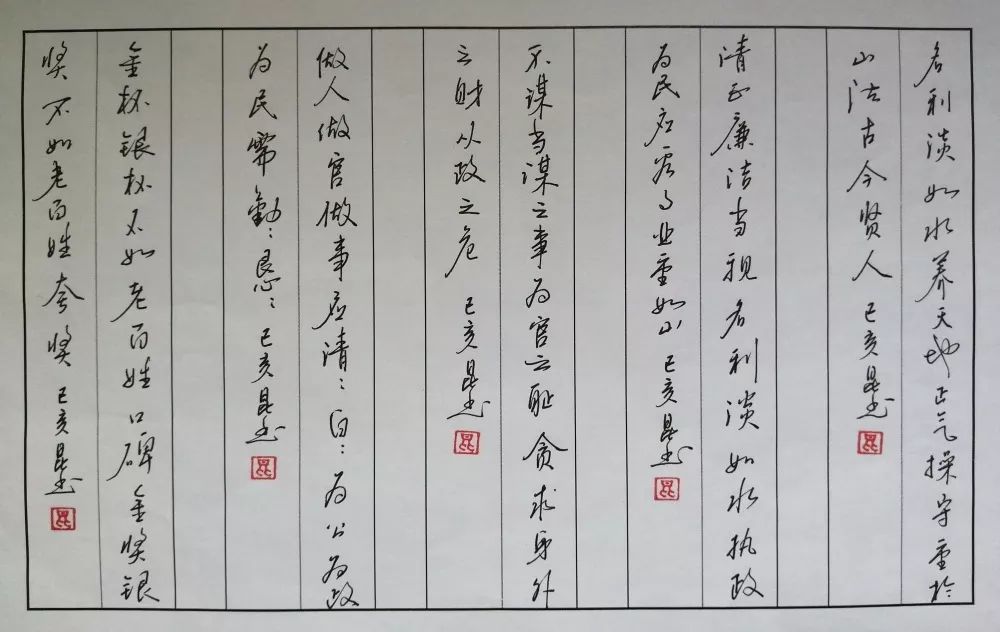 名利淡如水养天地正气操守重于
山法古今贤人 己亥昆书
昆
清正廉洁当视名利淡如水执政
为民应看事业重如山 己亥昆书
昆
不谋当谋之事为官之耻 贪求身外
之财从政之危 己亥昆书
昆
做人做官做事应清:白:为公为政
为民需勤:恳:己亥昆书
昆
金杯银杯不如老百姓口碑金奖银
奖不如老百姓夸奖 己亥昆书
昆